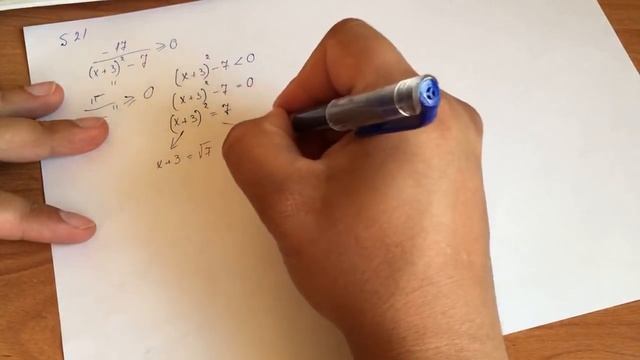 S 21
-17 / ((x+3)² - 7) ≥ 0
"-" / "-" ≥ 0
(x+3)² - 7 < 0
(x+3)² - 7 = 0
(x+3)² = 7
x+3 = √7